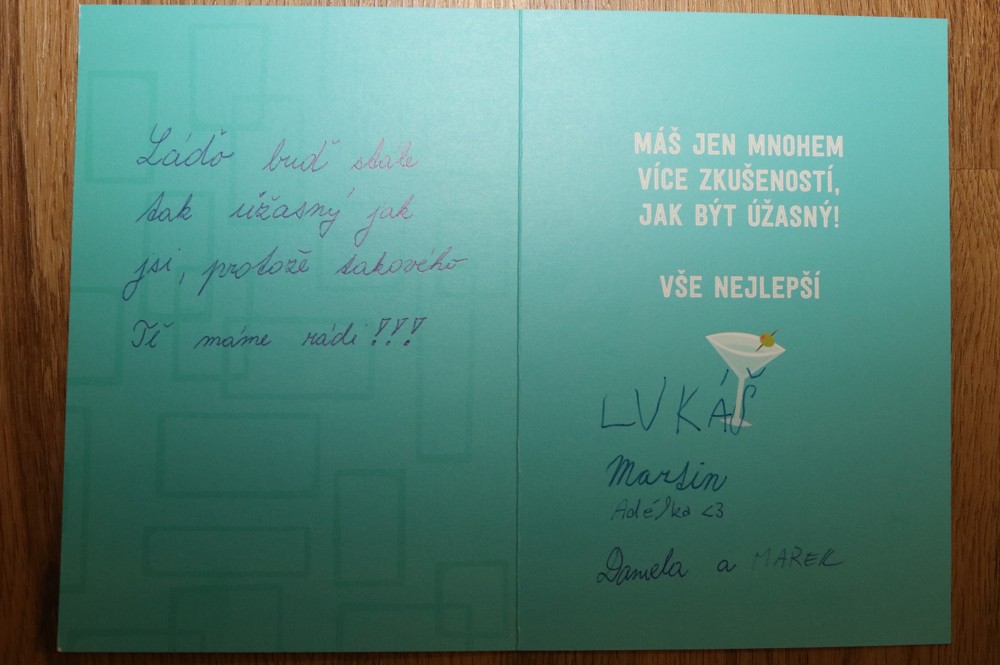 Láďo buď stále
tak úžasný jak
jsi, protožě takového
Tě máme rádi!!!
MÁŠ JEN MNOHEM
VÍCE ZKUŠENOSTÍ,
JAK BÝT ÚŽASNÝ!
VŠE NEJLEPŠÍ
LUKÁŠ
Martin
Adélka <3
Daniela a MAREK